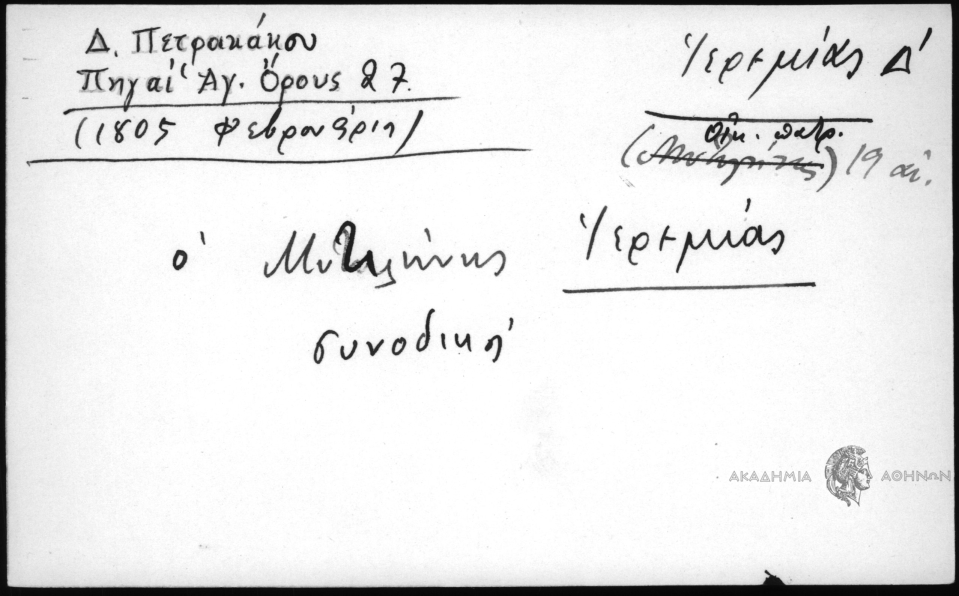 Δ. Πετρακάκου
Πηγαὶ Ἁγ. Ὄρους 27.
(1805 Φεβρουάριος)
Ἱερεμίας Δ'
Οἰκ. πατρ.
(Μυτιλήνης) 19 αἰ.
ὁ Μυτιλήνης Ἱερεμίας
συνοδική
ΑΚΑΔΗΜΙΑ ΑΘΗΝΩΝ